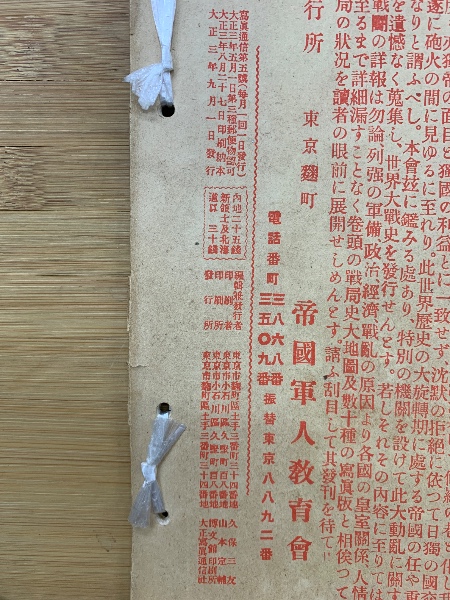 亦獨帝の面目と獨國の利益とに一致せず、沈默は
遂に砲火の間に見ゆるに至れり。此世界歴史の大旋轉期に處する帝國の任や重
なりと謂ふべし。本會茲に鑑みる處あり、特別の機關を設けて此大動亂に關す
を遺憾なく蒐集し、世界大戰史を發行せんとす。若しそれその内容に至りては
戰鬪の詳報は勿論列强の軍備政治經濟、戰亂の原因より各國の皇室關係、人情
至るまで詳細漏すことなく卷頭の戰局史大地圖及數十種の寫眞版と相俟つて
局の狀況を讀者の眼前に展開せしめんとす。請ふ刮目して其發刊を待て
行所 東京麴町 帝國軍人敎育會
電話番町 三八六八番 三五〇九番 振替東京八八九二番
寫眞通信第五號(每月一回一日發行)
大正三年五月一日第三種郵便物認可
大正三年八月二十七日印刷納本
大正三年九月一日發行
內地二十五錢
新領土及北海
道共 三十錢
編輯兼發行者 東京市麴町區土手三番町三十四番地 久保三友
印刷者 東京市小石川區久堅町百八番地 山本定輔
印刷所 東京市小石川區久堅町百八番地 博文館印刷所
發行所 東京市麴町區土手三番町三十四番地 大正寫眞通信社